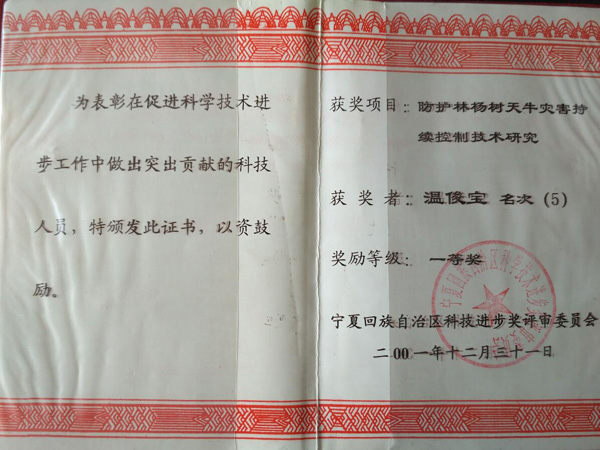 为表彰在促进科学技术进
步工作中做出突出贡献的科技
人员，特颁发此证书，以资鼓
励。
获奖项目：防护林杨树天牛灾害持
续控制技术研究
获奖者：温俊宝 名次（5）
奖励等级：一等奖
宁夏回族自治区科技进步奖评审委员会
二00一年十二月三十一日